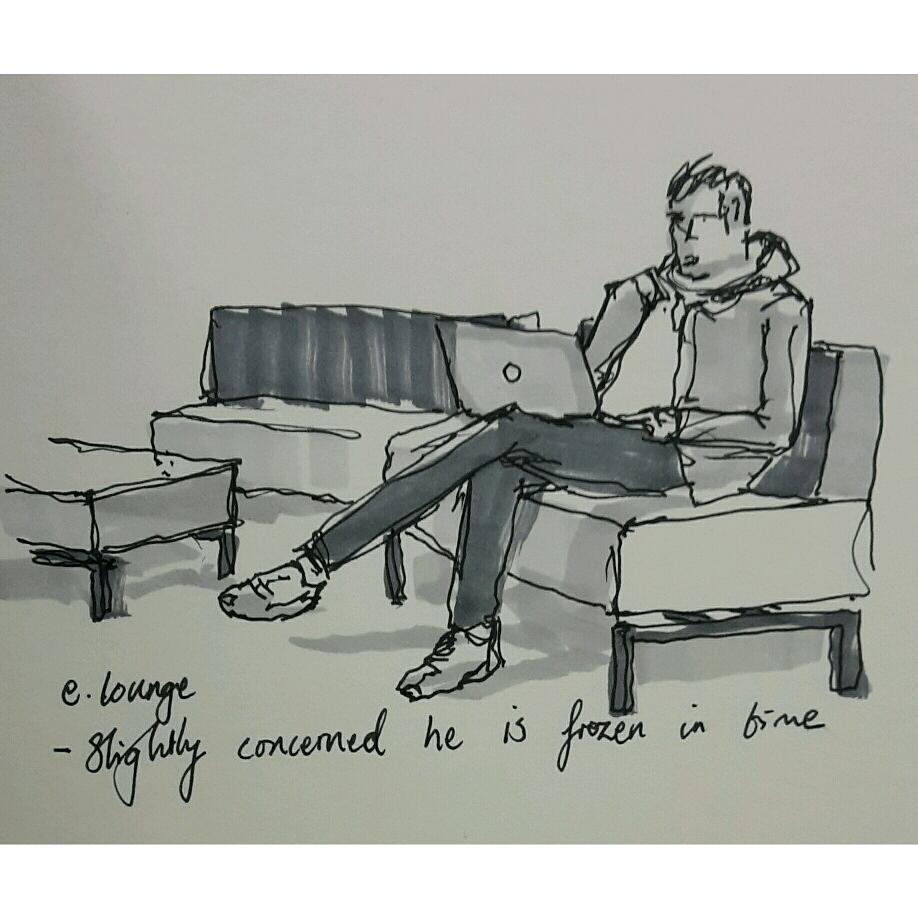 e. lounge
- Slightly concerned he is frozen in time